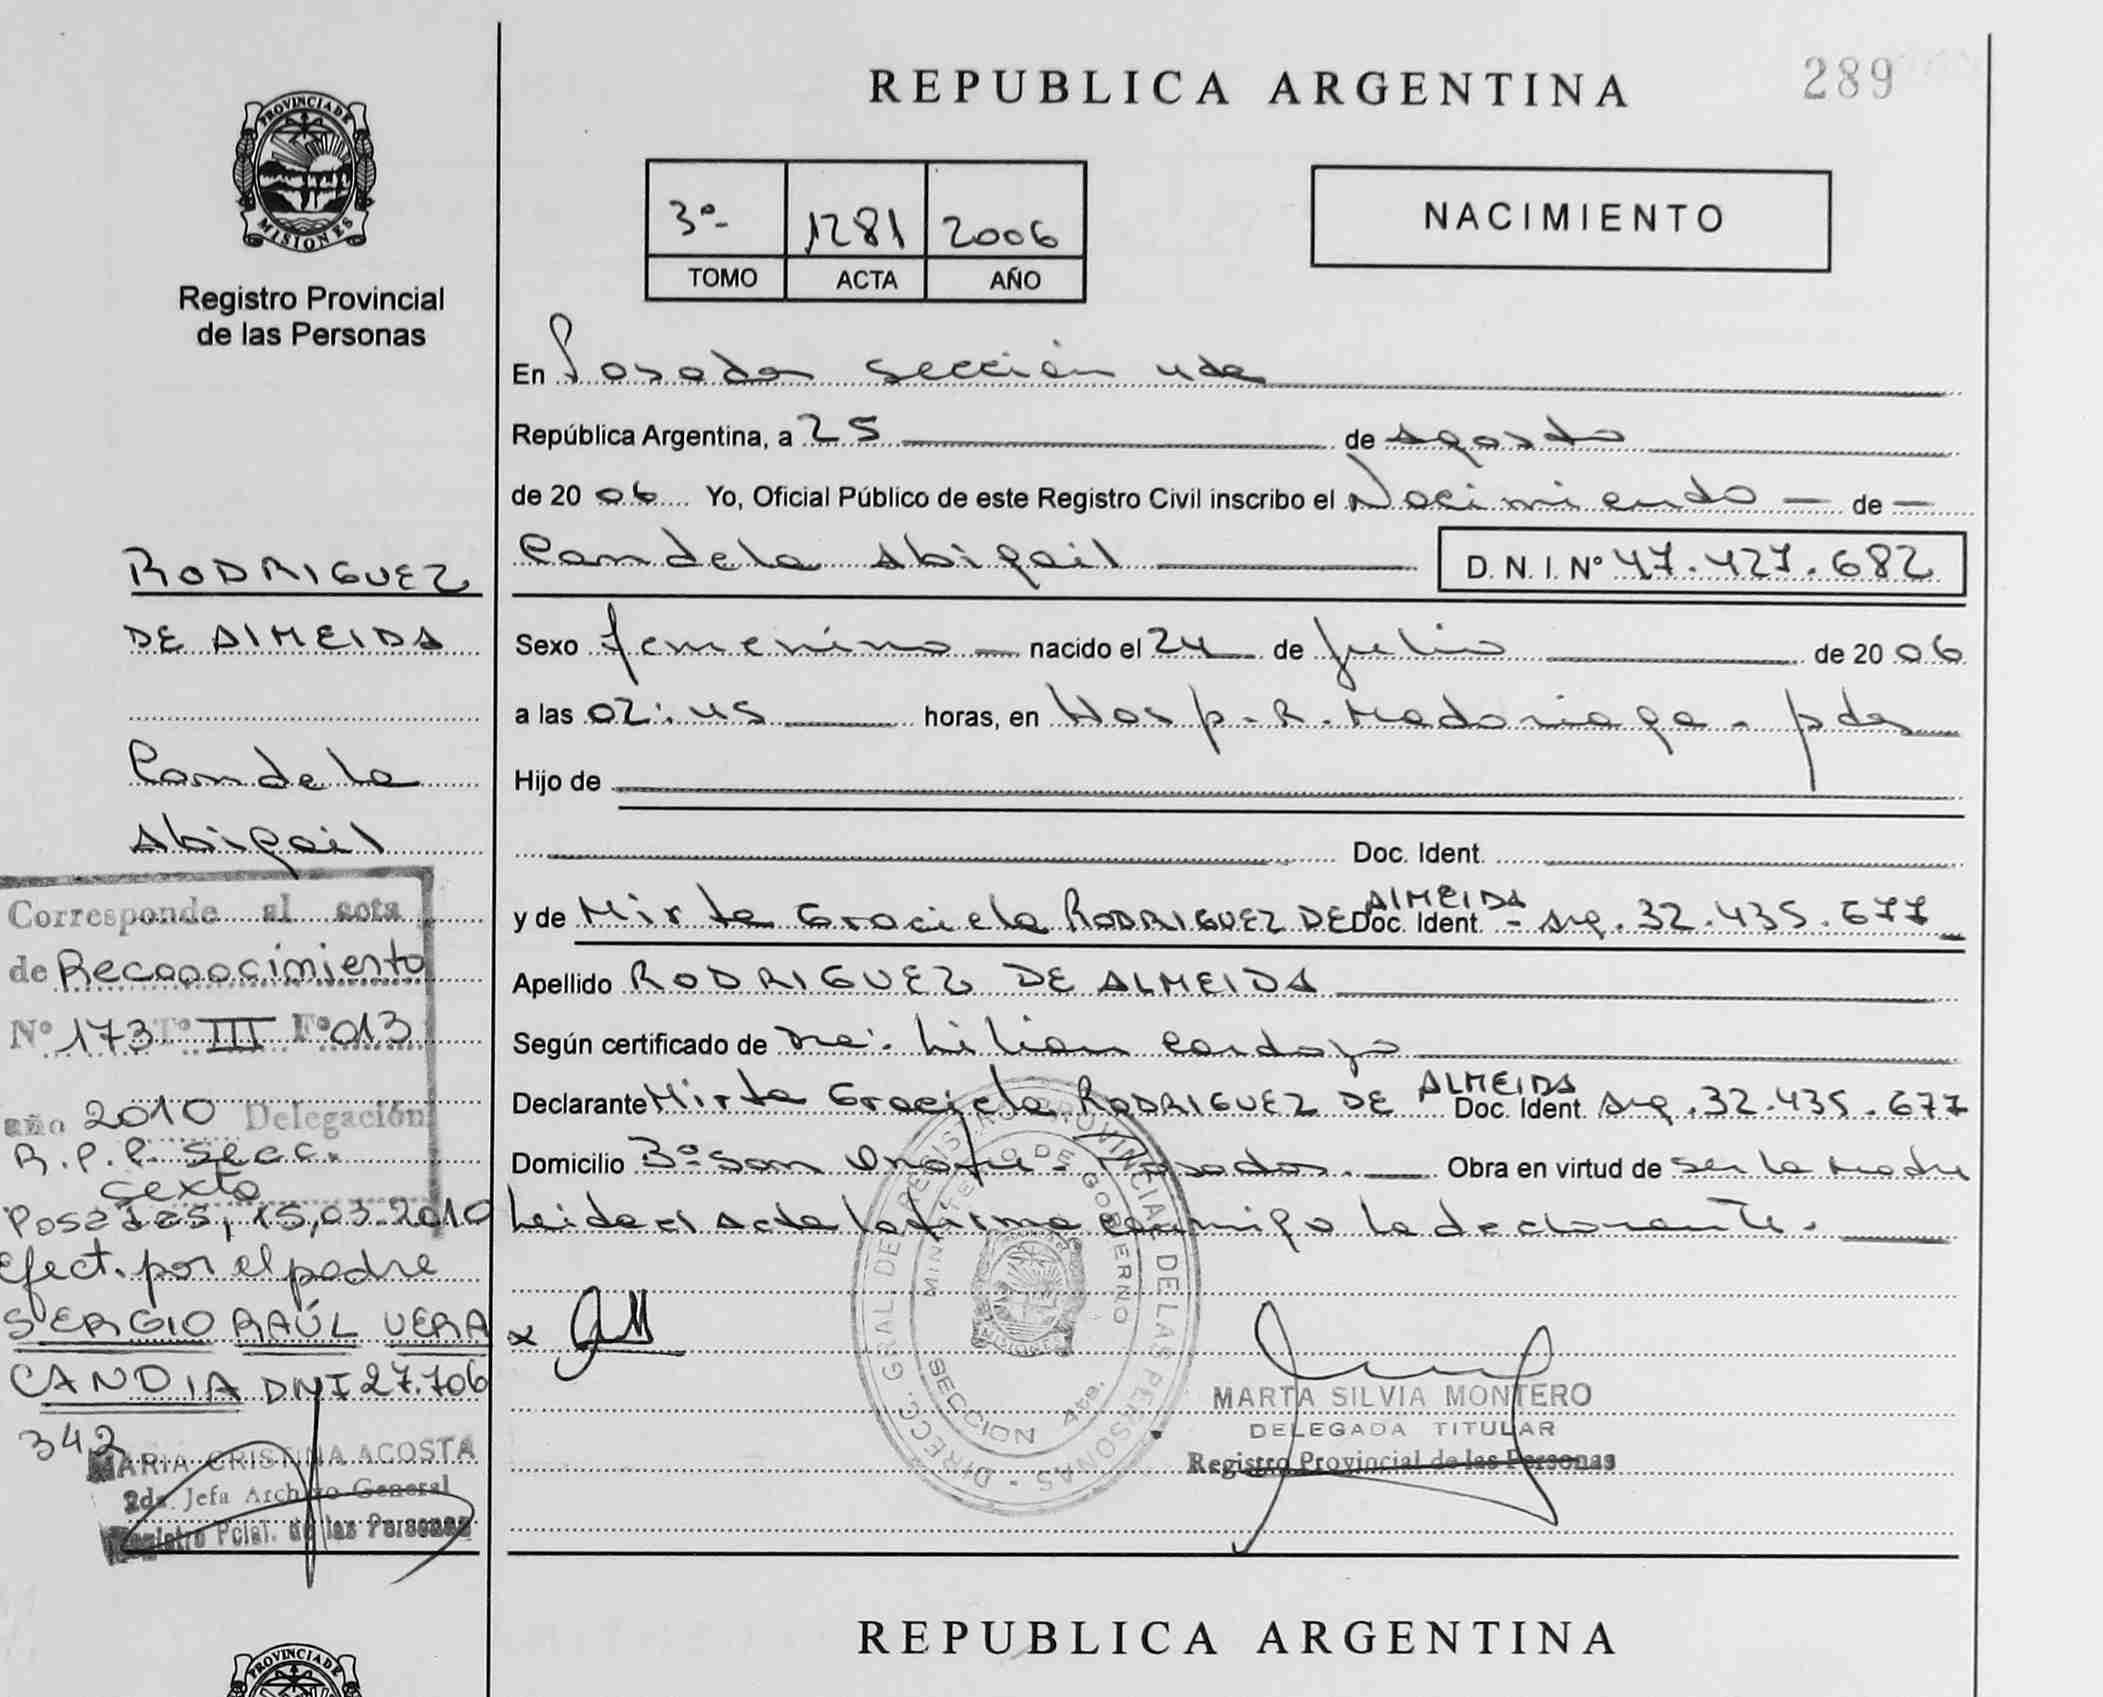 REPUBLICA ARGENTINA
289
PROVINCIA DE
MISIONES
Registro Provincial
de las Personas
3º 1281 2006
TOMO ACTA AÑO
NACIMIENTO
En Posadas sección 4ta
República Argentina, a 25 de agosto
de 2006 Yo, Oficial Público de este Registro Civil inscribo el Nacimiento de
Candela Abigail D. N. I. Nº 47.427.682
Sexo femenino nacido el 24 de Julio de 2006
a las 02:45 horas, en Hosp. R. Madariaga - pdas
Hijo de
Doc. Ident.
y de Mirta Graciela RODRIGUEZ DE ALMEIDA Doc. Ident. - Arg. 32.435.677
Apellido RODRIGUEZ DE ALMEIDA
Según certificado de Dra: Lilian Cardozo
Declarante Mirta Graciela RODRIGUEZ DE ALMEIDA Doc. Ident. Arg. 32.435.677
Domicilio Bº San Onofre - Posadas. Obra en virtud de ser la Madre
Leída el Acta la firma conmigo la declarante.
RODRIGUEZ
DE ALMEIDA
Candela
Abigail
Corresponde al acta
de Reconocimiento
Nº 173 Tº III Fº 013
año 2010 Delegación
R.P.P. Secc.
sexta
Posadas, 15,03.2010
Efect. por el padre
SERGIO RAÚL VERA
CANDIA DNI 27.706
342
MARIA CRISTINA ACOSTA
2da. Jefa Archivo General
Registro Pcial. de las Personas
DIRECC. GRAL. DE REGISTRO PROVINCIAL DE LAS PERSONAS
MINISTERIO DE GOBIERNO
MISIONES
SECCION 4ta.
MARTA SILVIA MONTERO
DELEGADA TITULAR
Registro Provincial de las Personas
REPUBLICA ARGENTINA
PROVINCIA DE